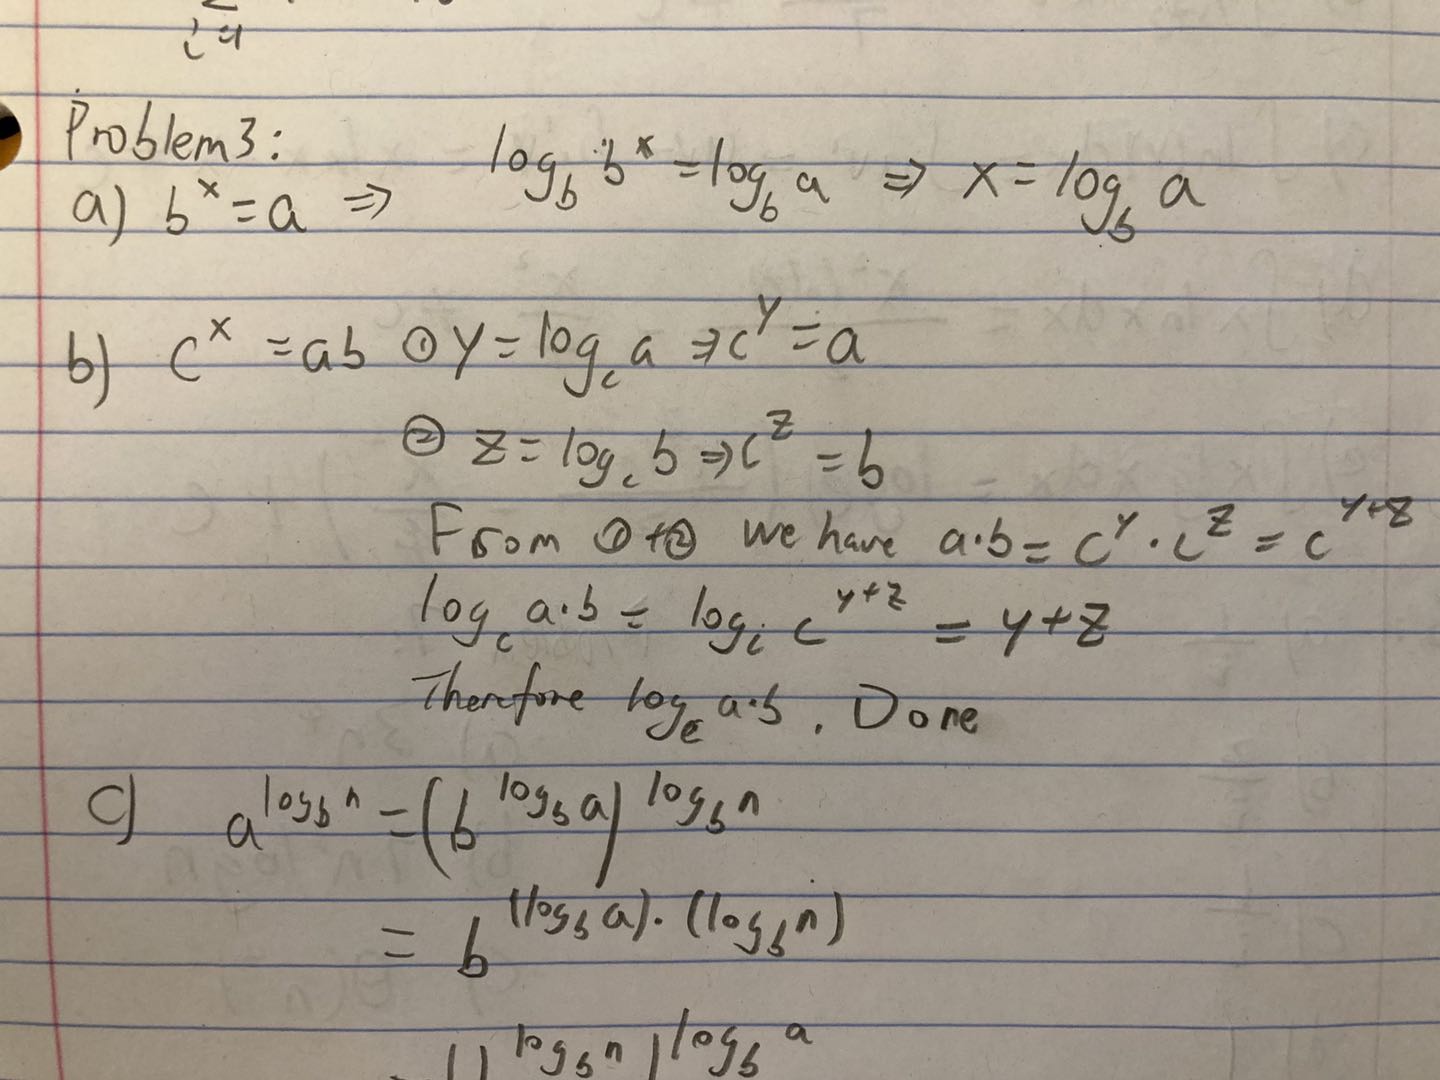 i=1
Problem 3:
a) b^x = a ⇒ log_b b^x = log_b a ⇒ x = log_b a
b) c^x = ab ① y = log_c a ⇒ c^y = a
② z = log_c b ⇒ c^z = b
From ① + ② we have a·b = c^y · c^z = c^{y+z}
log_c a·b = log_c c^{y+z} = y+z
Therefore log_c a·b . Done
c) a^{log_b n} = (b^{log_b a})^{log_b n}
= b^{(log_b a)·(log_b n)}
log_b n) log_b a